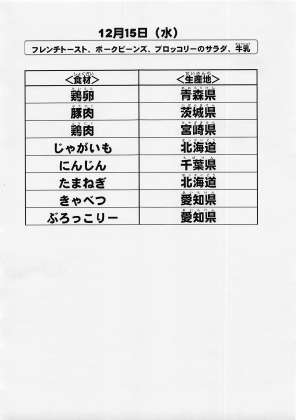 12月15日（水）
フレンチトースト、ポークビーンズ、ブロッコリーのサラダ、牛乳
＜食材＞ ＜生産地＞
鶏卵 青森県
豚肉 茨城県
鶏肉 宮崎県
じゃがいも 北海道
にんじん 千葉県
たまねぎ 北海道
きゃべつ 愛知県
ぶろっこりー 愛知県